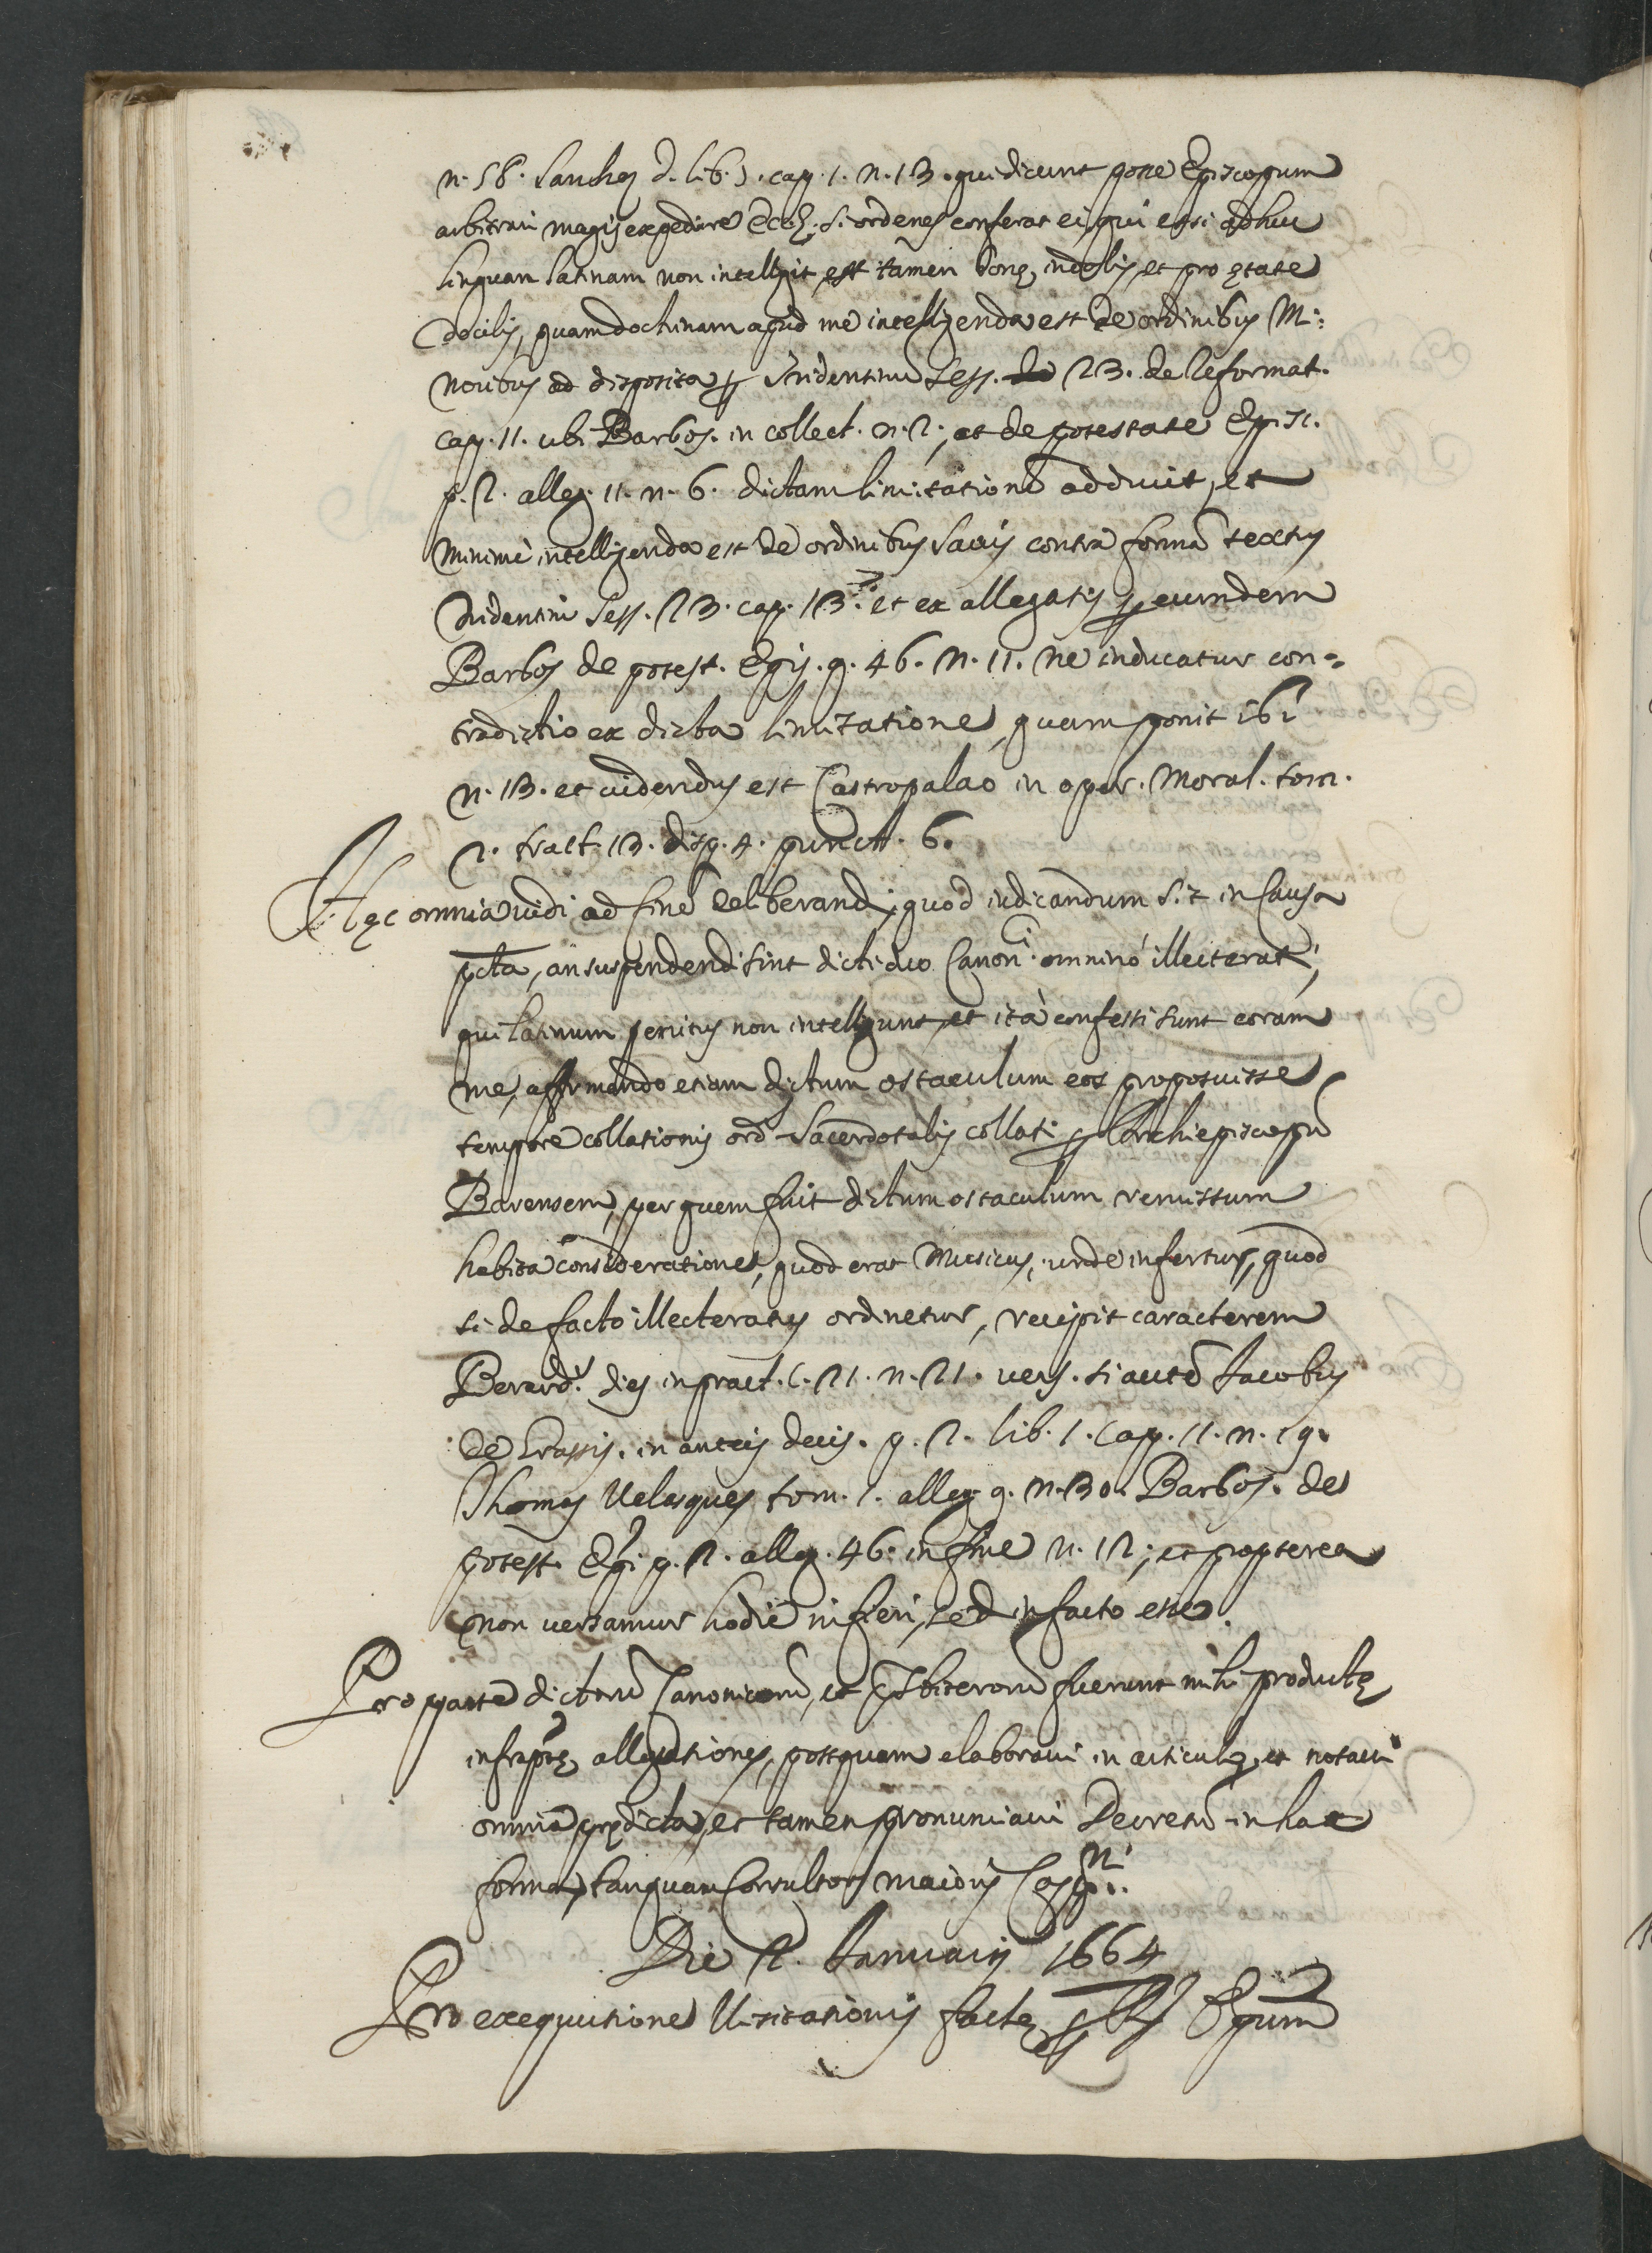 n. 58. Sanchez d. lib. 5. cap. 1. n. 13. qui dicunt posse Episcopum
arbitrari magis expedire Eccl. si ordenes conferat ei, qui etsi adhuc
linguam latinam non intelligit, est tamen bonę indolis, et pro ętate
docilis, quam doctrinam apud me intelligenda est de ordinibus Mi=
noribus ad disposita per Tridentinũ Sess. 23. de Reformat.
cap. 11. ubi Barbos. in collect. n. 2., et de potestate Episc.
p. 2. alleg. 11. n. 6. dictam limitationẽ adducit, et
minimè intelligenda est de ordinibus sacris contra formã textus
Tridentini sess. 23. cap. 13. et ex allegatis per eumdem
Barbos de potest. Epis. q. 46. n. 11. ne inducatur con=
tradictio ex dicta limitatione, quam ponit ibi
n. 13. et uidendus est Castropalao in oper. Moral. tom.
2. tract. 13. disp. 4. punct. 6.
Hęc omnia uidi ad finẽ deliberandi, quod iudicandum sit in Causa
pcta, an suspendendi sint dicti duo Canonⁱ. omninò illecterati,
qui latinum penitus non intelligunt, et ità confessi sunt coram
me, affirmando etiam dictum ostaculum eos proposuisse
tempore collationis ord. Sacerdotalis collati per Archiepiscopũ
Barensem, per quem fuit dictum ostaculum remissum
habita consideratione, quod erat Musicus, unde infertur, quod
si de facto illecteratus ordinetur, recipit caracterem
Berard. dies in pract. c. 21. n. 21. uers. si autẽ Jacobus
de Grassis. in aureis decis. p. 2. lib. 1. cap. 11. n. 19.
Thomas Velasques tom. 1. alleg. 9. n. 30. Barbos. de
potest. Epi. p. 2. alleg. 46. in fine n. 12., et propterea
non uersamur hodie in fieri, sed in facto esse.
Pro parte dictorũ Canonicorũ, et Psbiterorũ fuerunt mihi productę
infraptę allegationes, postquam elaboraui in articulo, et notaui
omnia prędicta, et tamen pronunciaui Decretũ in hac
forma, tanquam Consultor maioris
Die 2. Januarij 1664
Pro exequutione Visitationis factę per